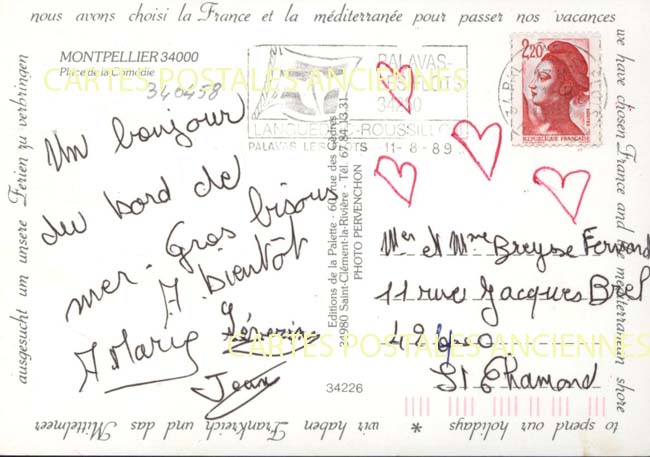 nous avons choisi la France et la méditerranée pour passer nos vacances
we have chosen France and the mediterranean shore
to spend our holidays * wir haben Frankreich und das Mittelmeer
ausgesucht um unsere Ferien zu verbringen
MONTPELLIER 34000
Place de la Comédie
340458
PALAVAS-
LES-FLOTS
34250
LANGUEDOC-ROUSSILLON
PALAVAS LES FLOTS 11-8-89
2,20
REPUBLIQUE FRANÇAISE
CARTES POSTALES ANCIENNES
Un bonjour
du bord de
mer. Gros bisous
A Bientôt
A Marie Séverine
Jean
Editions de la Palette - rue des Cèdres
34980 Saint-Clément-la-Rivière - Tél. 67.84.13.31
PHOTO PERVENCHON
Mer et Mme Breysse Fernand
11 rue Jacques Brel
42400
St Chamond
CARTES POSTALES ANCIENNES
34226